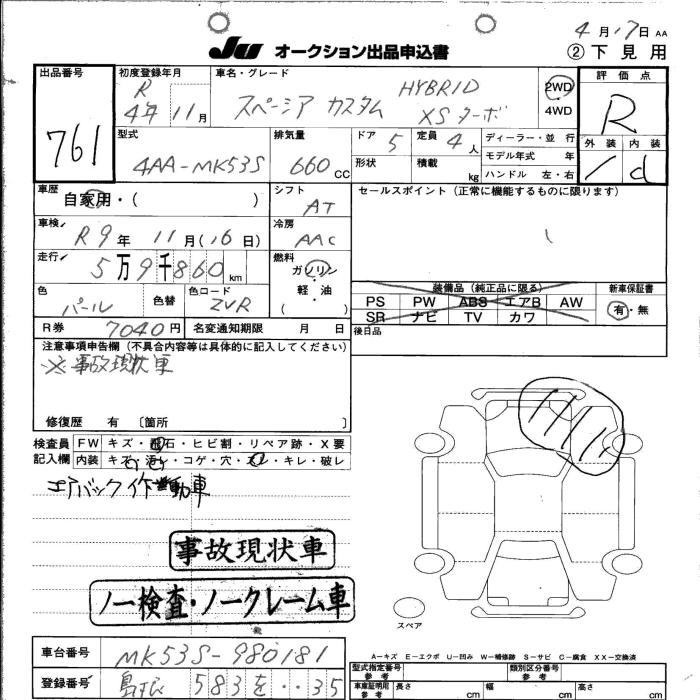 4月17日 AA
JU オークション出品申込書 ②下見用
出品番号 761
初度登録年月 R4年11月
車名・グレード スペーシア カスタム HYBRID XSターボ
2WD
4WD
評価点 R
外装 内装
1 d
型式 4AA-MK53S
排気量 660 CC
ドア 5
定員 4人
形状
積載 kg
ディーラー・並行
モデル年式 年
ハンドル 左・右
車歴 自家用・( )
シフト AT
セールスポイント(正常に機能するものに限ります)
車検 R9年11月(16日)
冷房 AAC
走行 5万9千860km
燃料 ガソリン・軽・油 ( )
色 パール 色替
色コード ZVR
装備品(純正品に限る)
PS PW ABS エアB AW
SR ナビ TV カワ
新車保証書 有・無
R券 7040円
名変通知期限 月 日
後日品
注意事項申告欄(不具合内容等は具体的に記入してください)
※事故現状車
修復歴 有 〔箇所 〕
検査員記入欄
FW キズ・飛石・ヒビ割・リペア跡・X要
内装 キズ・汚れ・コゲ・穴・スレ・キレ・破レ
エアバック作動車
事故現状車
ノー検査・ノークレーム車
スペア
A-キズ E-エクボ U-凹み W-補修跡 S-サビ C-腐食 XX-交換済
車台番号 MK53S-980181
型式指定番号
類別区分番号
登録番号 島根 583 を ・・35
車庫証明用参考 長さ cm
参考 幅 cm
参考 高さ cm